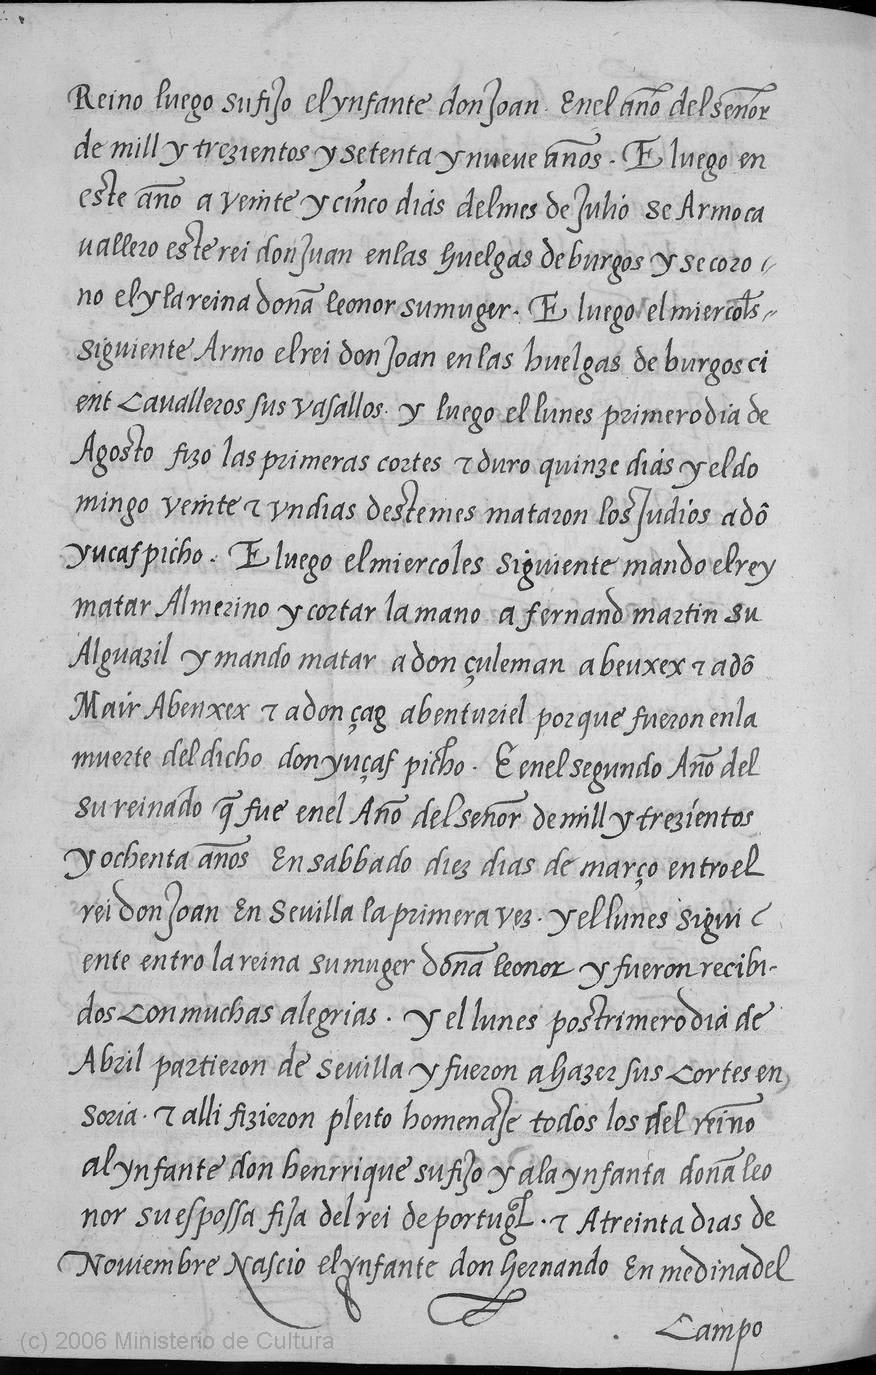 Reino luego su fijo el ynfante don Joan. En el año del señor
de mill y trezientos y setenta y nueve años. E luego en
este año a veinte y cinco dias del mes de Julio se Armo ca
uallero este rei don Juan en las huelgas de burgos y se coro
no el y la reina doña leonor su muger. E luego el miercols
siguiente Armo el rei don Joan en las huelgas de burgos ci
ent Caualleros sus vasallos. y luego el lunes primero dia de
Agosto fizo las primeras cortes τ duro quinze dias y el do
mingo veinte τ vn dias deste mes mataron los Judios a dõ
yucaf picho. E luego el miercoles siguiente mando el rey
matar Al merino y cortar la mano a fernand martin su
Alguazil y mando matar a don çuleman abeuxex τ a dõ
Mair Abenxex τ a don çag abenturiel porque fueron en la
muerte del dicho don yuçaf picho. E en el segundo Año del
su reinado q̃ fue en el Año del señor de mill y trezientos
y ochenta años En sabbado diez dias de março entro el
rei don Joan En Sevilla la primera vez. y el lunes sigui
ente entro la reina su muger doña leonor y fueron recibi-
dos Con muchas alegrias. y el lunes postrimero dia de
Abril partieron de Sevilla y fueron a hazer sus Cortes en
Soria. τ alli fizieron pleito homenaje todos los del reino
al ynfante don henrrique su fijo y a la ynfanta doña leo
nor su espossa fija del rei de portugl. τ A treinta dias de
Noviembre Nascio el ynfante don hernando En medina del
Campo
(c) 2006 Ministerio de Cultura